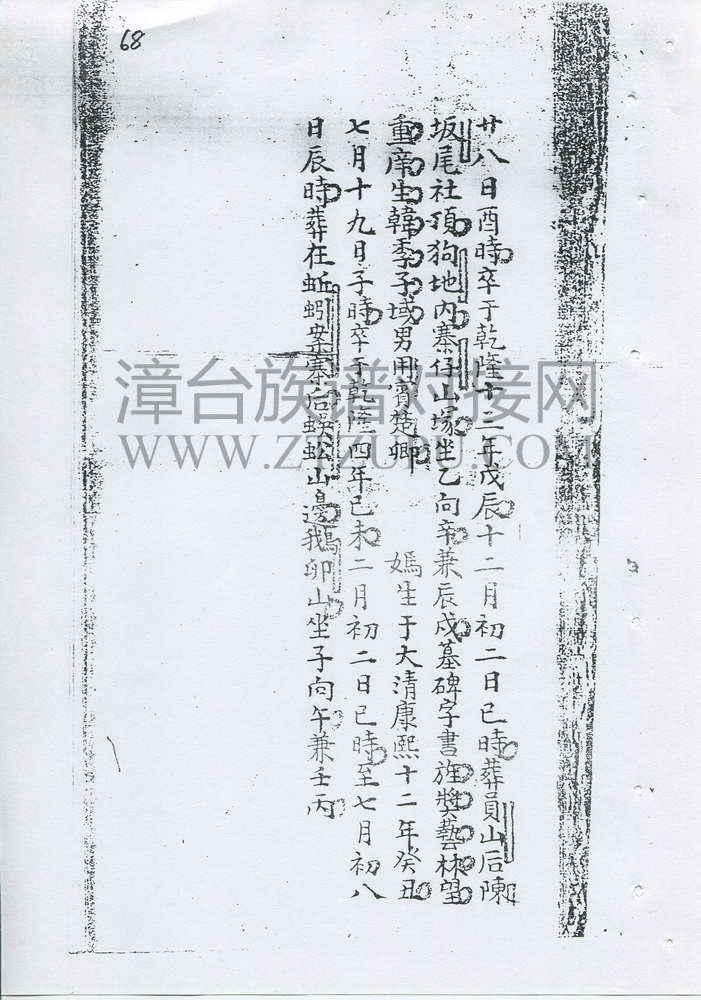 68
廿八日酉時卒于乾隆十三年戊辰十二月初二日巳時葬員山后陳
坂尾社頂狗地内寨仔山塚坐乙向辛兼辰戌墓碑字書旌獎藝林望
重庠生韓季子域男用賓楚卿 嫣生于大清康熙十二年癸丑
七月十九日子時卒于乾隆四年己未二月初二日巳時至七月初八
日辰時葬在蚯蚓案寨后蜈蚣山邊鵝卵山坐子向午兼壬丙
漳台族谱对接网
WWW.ZTZUPU.COM